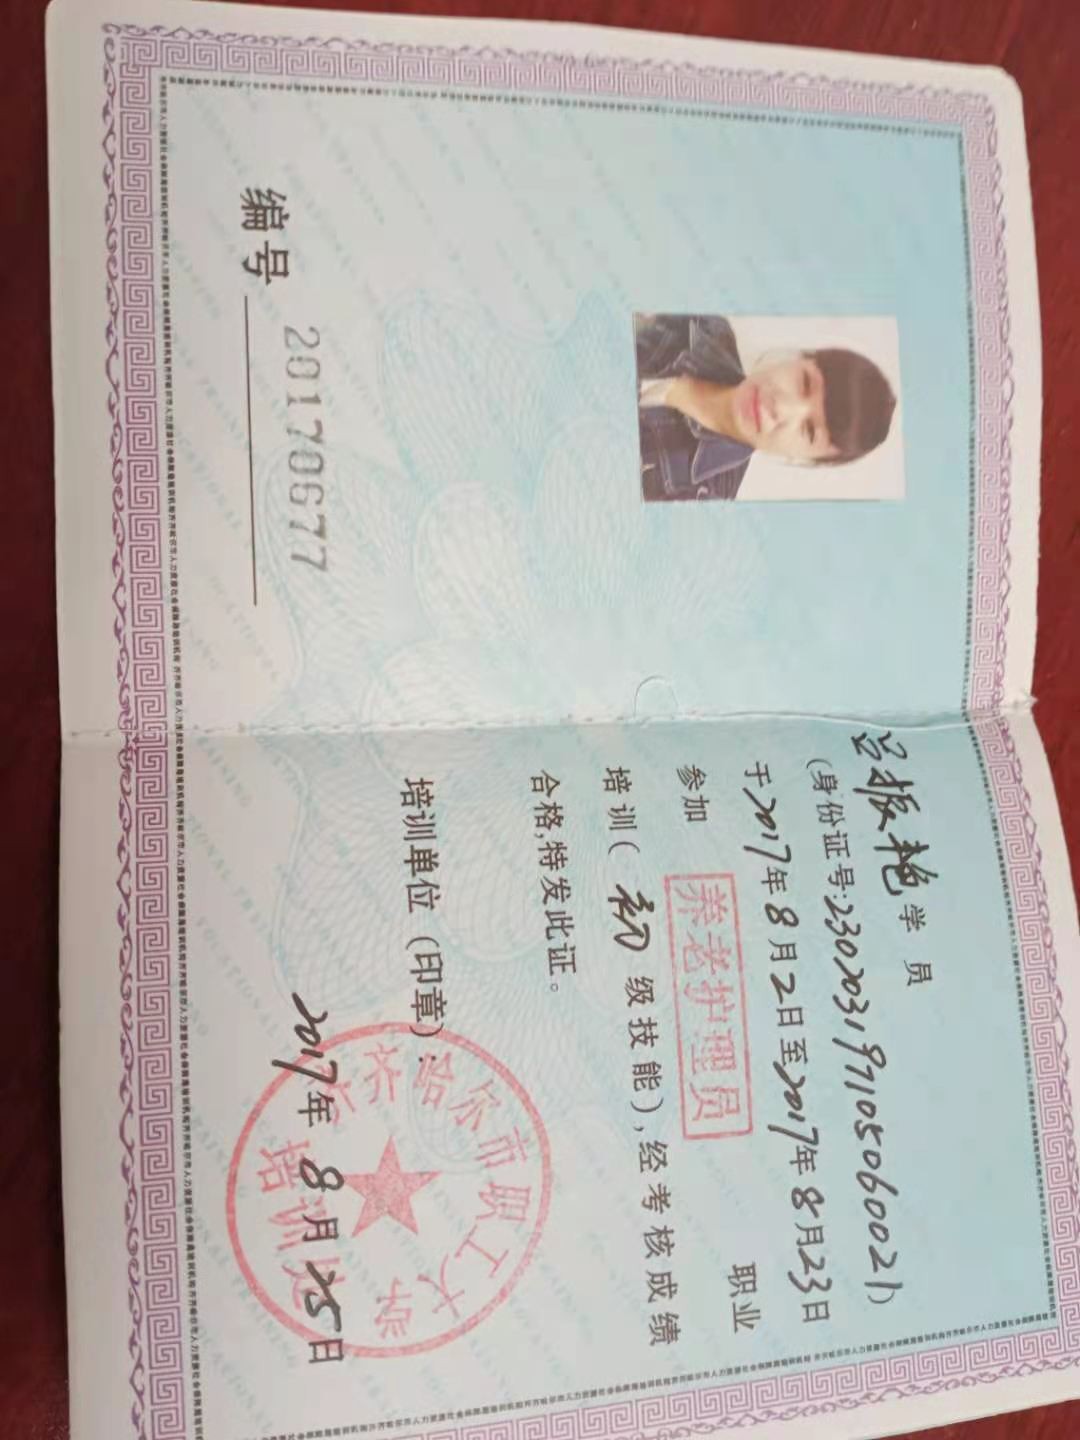 编号 20170677
吕振艳学员
(身份证号:230203197105060021)
于2017年8月2日至2017年8月23日
参加 养老护理员 职业
培训(初级技能),经考核成绩
合格,特发此证。
培训单位(印章):
齐齐哈尔市职工大学
培训处
2017年8月25日